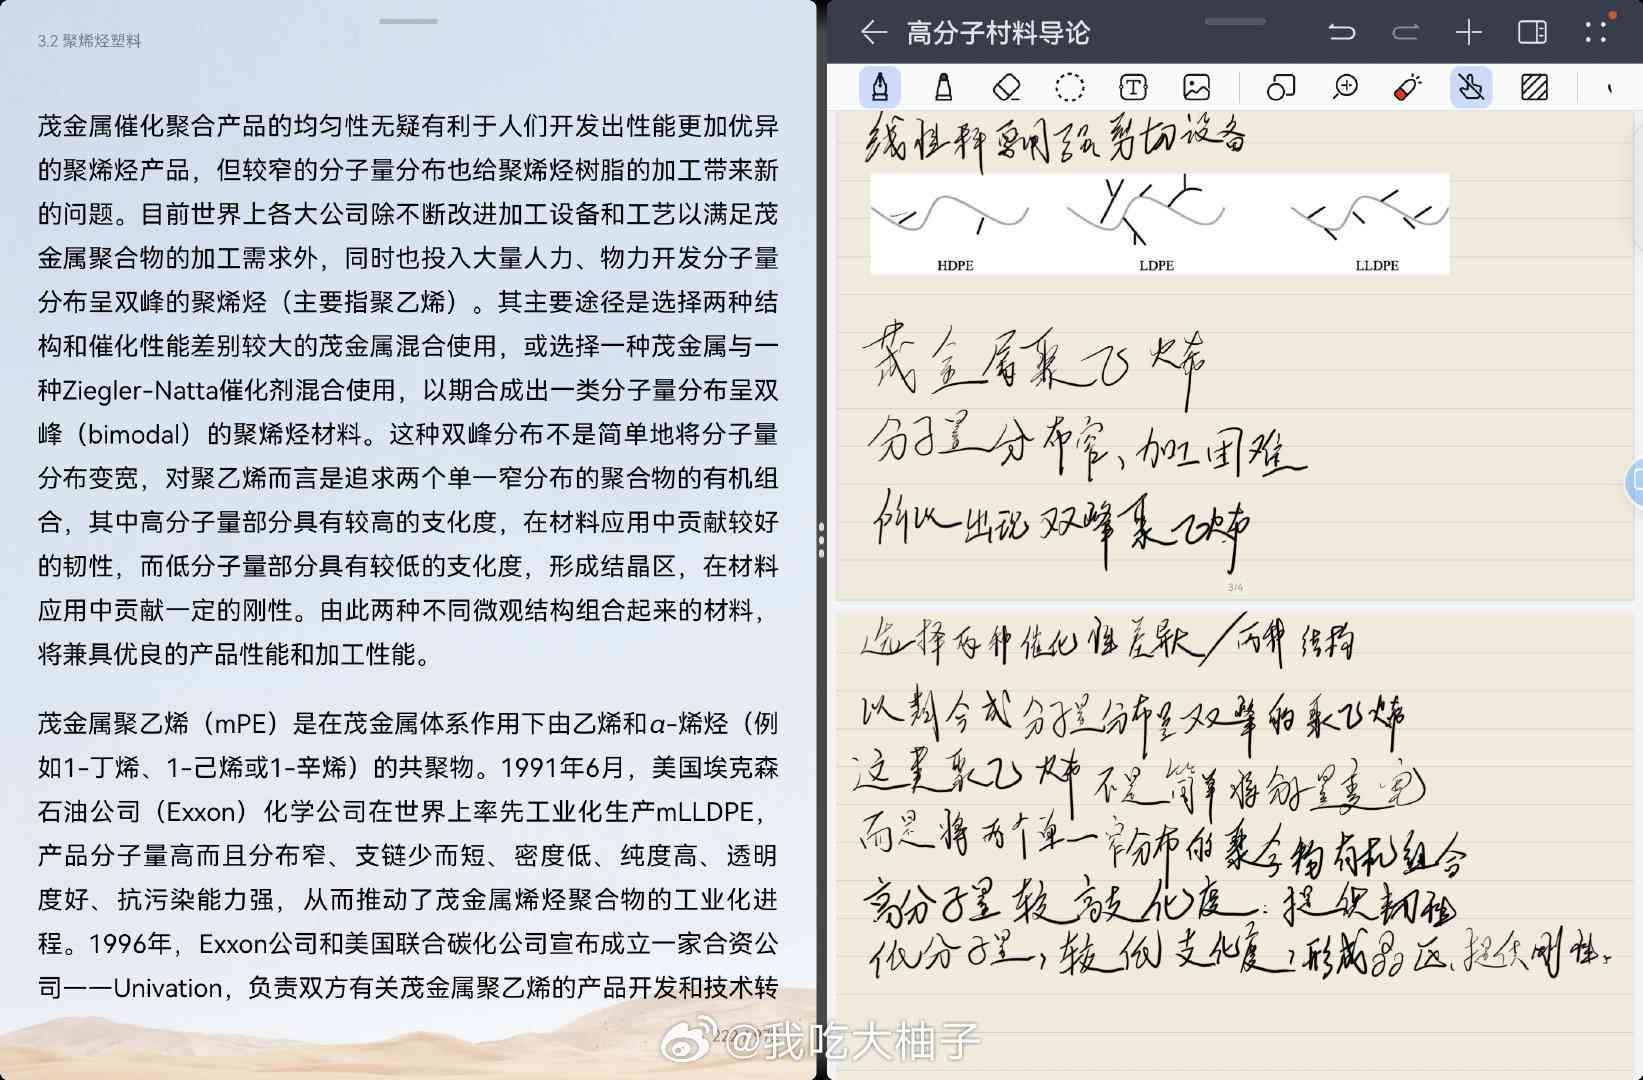 3.2 聚烯烃塑料
茂金属催化聚合产品的均匀性无疑有利于人们开发出性能更加优异
的聚烯烃产品，但较窄的分子量分布也给聚烯烃树脂的加工带来新
的问题。目前世界上各大公司除不断改进加工设备和工艺以满足茂
金属聚合物的加工需求外，同时也投入大量人力、物力开发分子量
分布呈双峰的聚烯烃（主要指聚乙烯）。其主要途径是选择两种结
构和催化性能差别较大的茂金属混合使用，或选择一种茂金属与一
种Ziegler-Natta催化剂混合使用，以期合成出一类分子量分布呈双
峰（bimodal）的聚烯烃材料。这种双峰分布不是简单地将分子量
分布变宽，对聚乙烯而言是追求两个单一窄分布的聚合物的有机组
合，其中高分子量部分具有较高的支化度，在材料应用中贡献较好
的韧性，而低分子量部分具有较低的支化度，形成结晶区，在材料
应用中贡献一定的刚性。由此两种不同微观结构组合起来的材料，
将兼具优良的产品性能和加工性能。
茂金属聚乙烯（mPE）是在茂金属体系作用下由乙烯和α-烯烃（例
如1-丁烯、1-己烯或1-辛烯）的共聚物。1991年6月，美国埃克森
石油公司（Exxon）化学公司在世界上率先工业化生产mLLDPE，
产品分子量高而且分布窄、支链少而短、密度低、纯度高、透明
度好、抗污染能力强，从而推动了茂金属烯烃聚合物的工业化进
程。1996年，Exxon公司和美国联合碳化公司宣布成立一家合资公
司——Univation，负责双方有关茂金属聚乙烯的产品开发和技术转
高分子材料导论
线性料要用强剪切设备
HDPE
LDPE
LLDPE
茂金属聚乙烯
分子量分布窄、加工困难
所以出现双峰聚乙烯
3/4
选择两种催化性差异大/两种结构
以期合成分子量分布呈双峰的聚乙烯
这类聚乙烯不是简单将分子量变宽
而是将两个单一窄分布的聚合物有机组合
高分子量较高支化度：提供韧性
低分子量，较低支化度，形成晶区、提供刚性。
@我吃大柚子